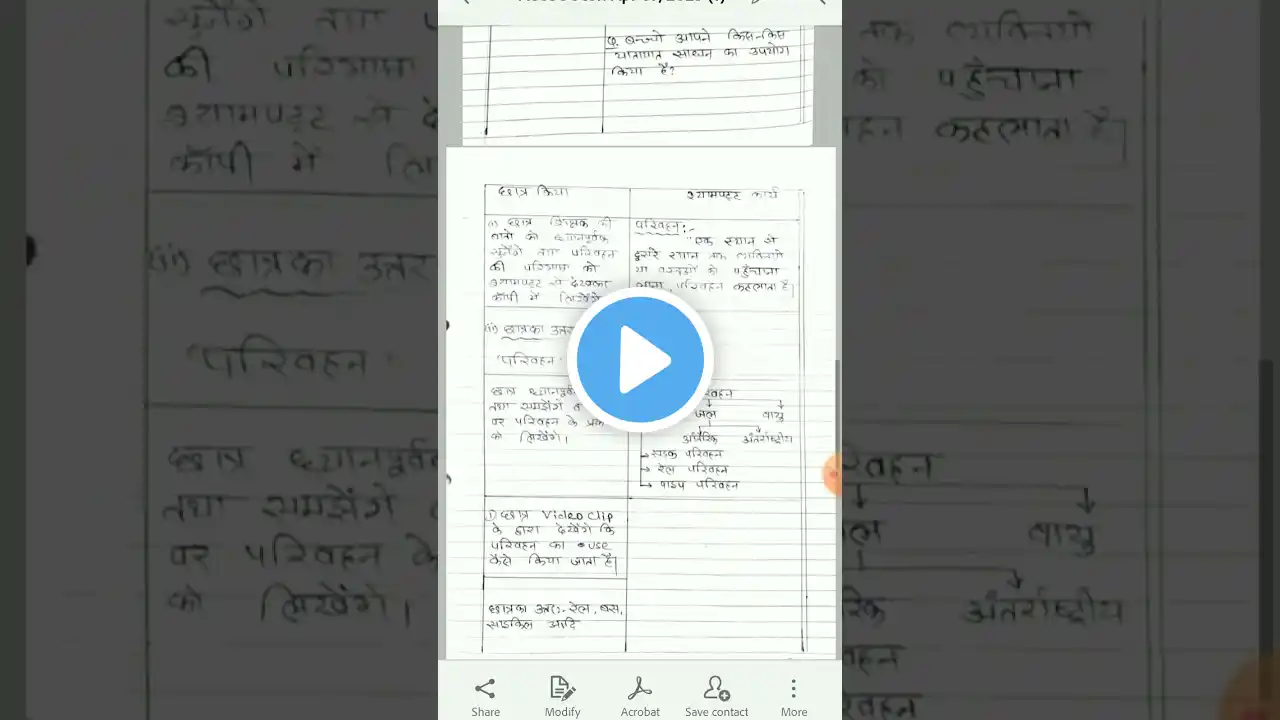 Q. बच्चो आपने किस-किस
यातायात साधन का उपयोग
किया है?
छात्र क्रिया
श्यामपट्ट कार्य
(i) छात्र शिक्षक की
बातों को ध्यानपूर्वक
सुनेंगे तथा परिवहन
की परिभाषा को
श्यामपट्ट से देखकर
कॉपी में लिखेंगे
परिवहन:-
"एक स्थान से
दूसरे स्थान तक व्यक्तियों
या वस्तुओं को पहुँचाना
परिवहन कहलाता है।
(ii) छात्र का उत्तर
"परिवहन"
छात्र ध्यानपूर्वक
तथा समझेंगे
पर परिवहन के
को लिखेंगे।
जल
वायु
अंतर्राष्ट्रीय
→ सडक परिवहन
→ रेल परिवहन
→ पाइप परिवहन
i) छात्र Video clip
के द्वारा देखेंगे कि
परिवहन का use
कैसे किया जाता है।
छात्र का उत्तर:- रेल, बस,
साइकिल आदि
Share
Modify
Acrobat
Save contact
More